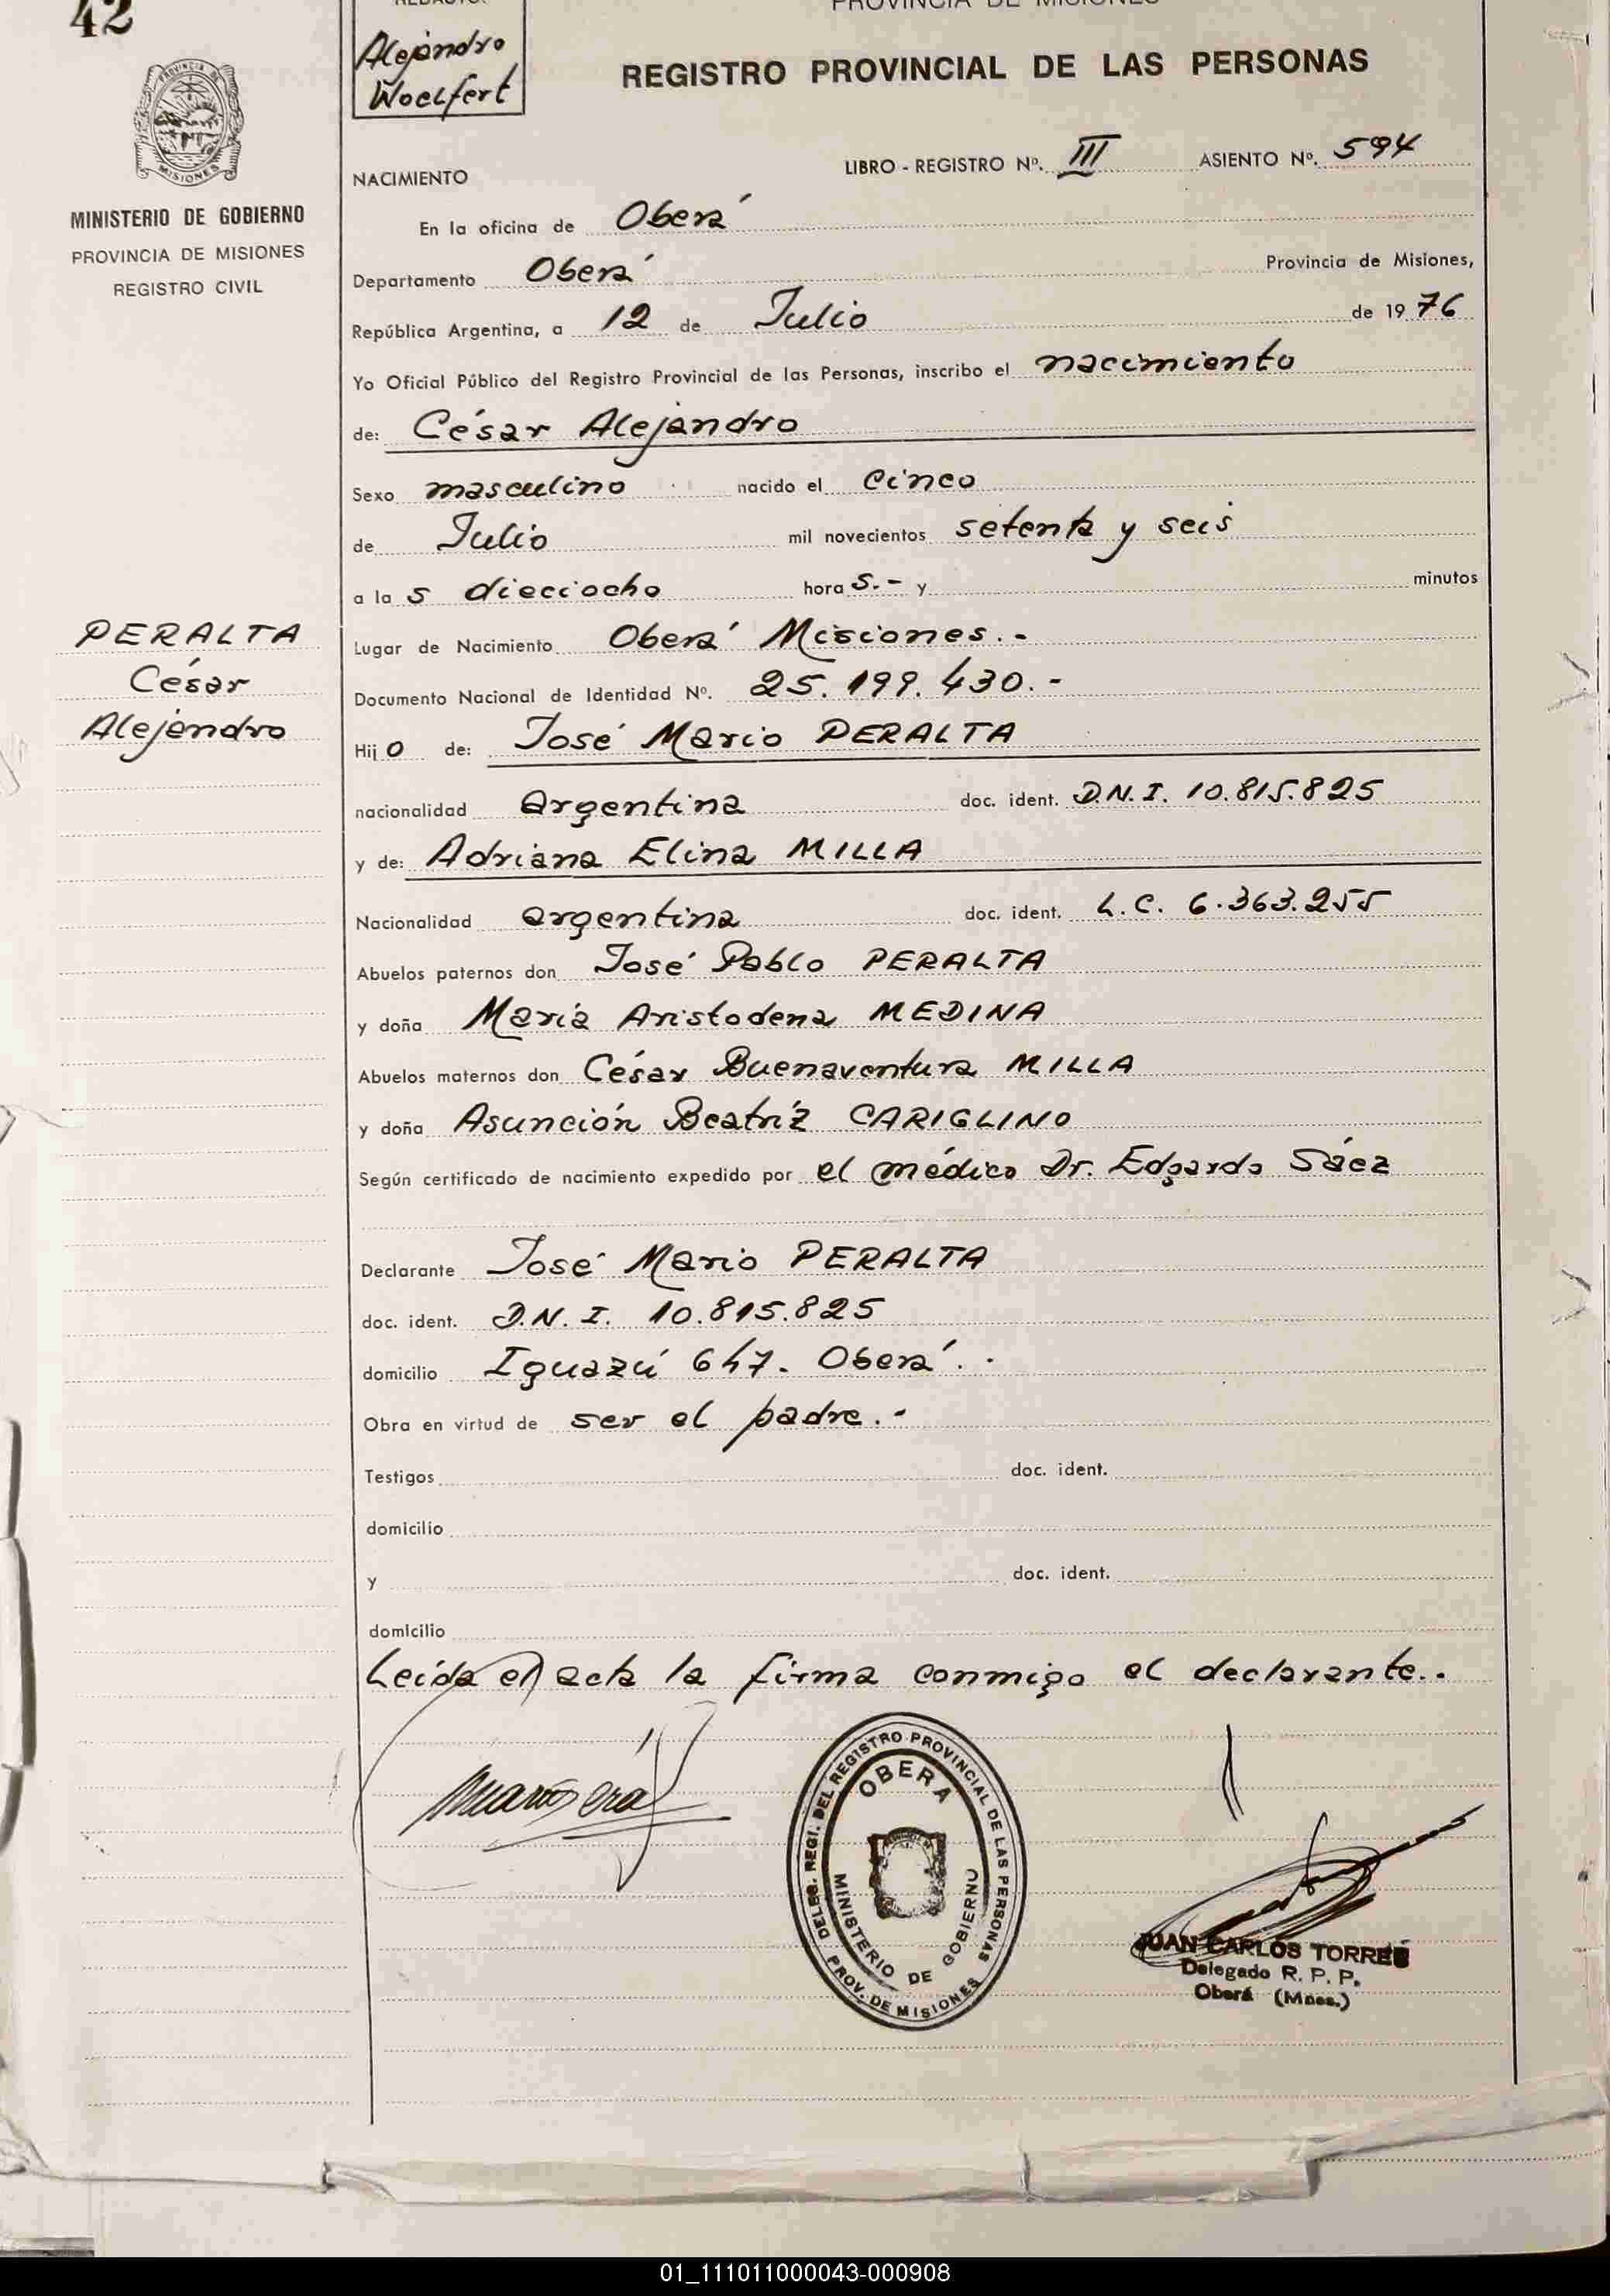 42
REDACTO:
Alejandro
Woelfert
PROVINCIA DE MISIONES
REGISTRO PROVINCIAL DE LAS PERSONAS
MISIONES
MINISTERIO DE GOBIERNO
PROVINCIA DE MISIONES
REGISTRO CIVIL
LIBRO - REGISTRO Nº. III ASIENTO Nº. 594
NACIMIENTO
En la oficina de Oberá
Departamento Oberá Provincia de Misiones,
República Argentina, a 12 de Julio de 1976
Yo Oficial Público del Registro Provincial de las Personas, inscribo el nacimiento
de: César Alejandro
Sexo masculino nacido el cinco
de Julio mil novecientos setenta y seis
a la s dieciocho hora s.- y minutos
PERALTA
César
Alejandro
Lugar de Nacimiento Oberá Misiones.-
Documento Nacional de Identidad Nº. 25.199.430.-
Hijo de: José Mario PERALTA
nacionalidad argentina doc. ident. D.N.I. 10.815.825
y de: Adriana Elina MILLA
Nacionalidad argentina doc. ident. L.C. 6.363.255
Abuelos paternos don José Pablo PERALTA
y doña María Aristodena MEDINA
Abuelos maternos don César Buenaventura MILLA
y doña Asunción Beatríz CARIGLINO
Según certificado de nacimiento expedido por el médico Dr. Edgardo Sáez
Declarante José Mario PERALTA
doc. ident. D.N.I. 10.815.825
domicilio Iguazú 647. Oberá.-
Obra en virtud de ser el padre.-
Testigos doc. ident.
domicilio
y doc. ident.
domicilio
Leída el acta la firma conmigo el declarante..
DELEG. REGI. DEL REGISTRO PROVINCIAL DE LAS PERSONAS
OBERA
MINISTERIO DE GOBIERNO
PROV. DE MISIONES
JUAN CARLOS TORRES
Delegado R. P. P.
Oberá (Mnes.)
01_111011000043-000908